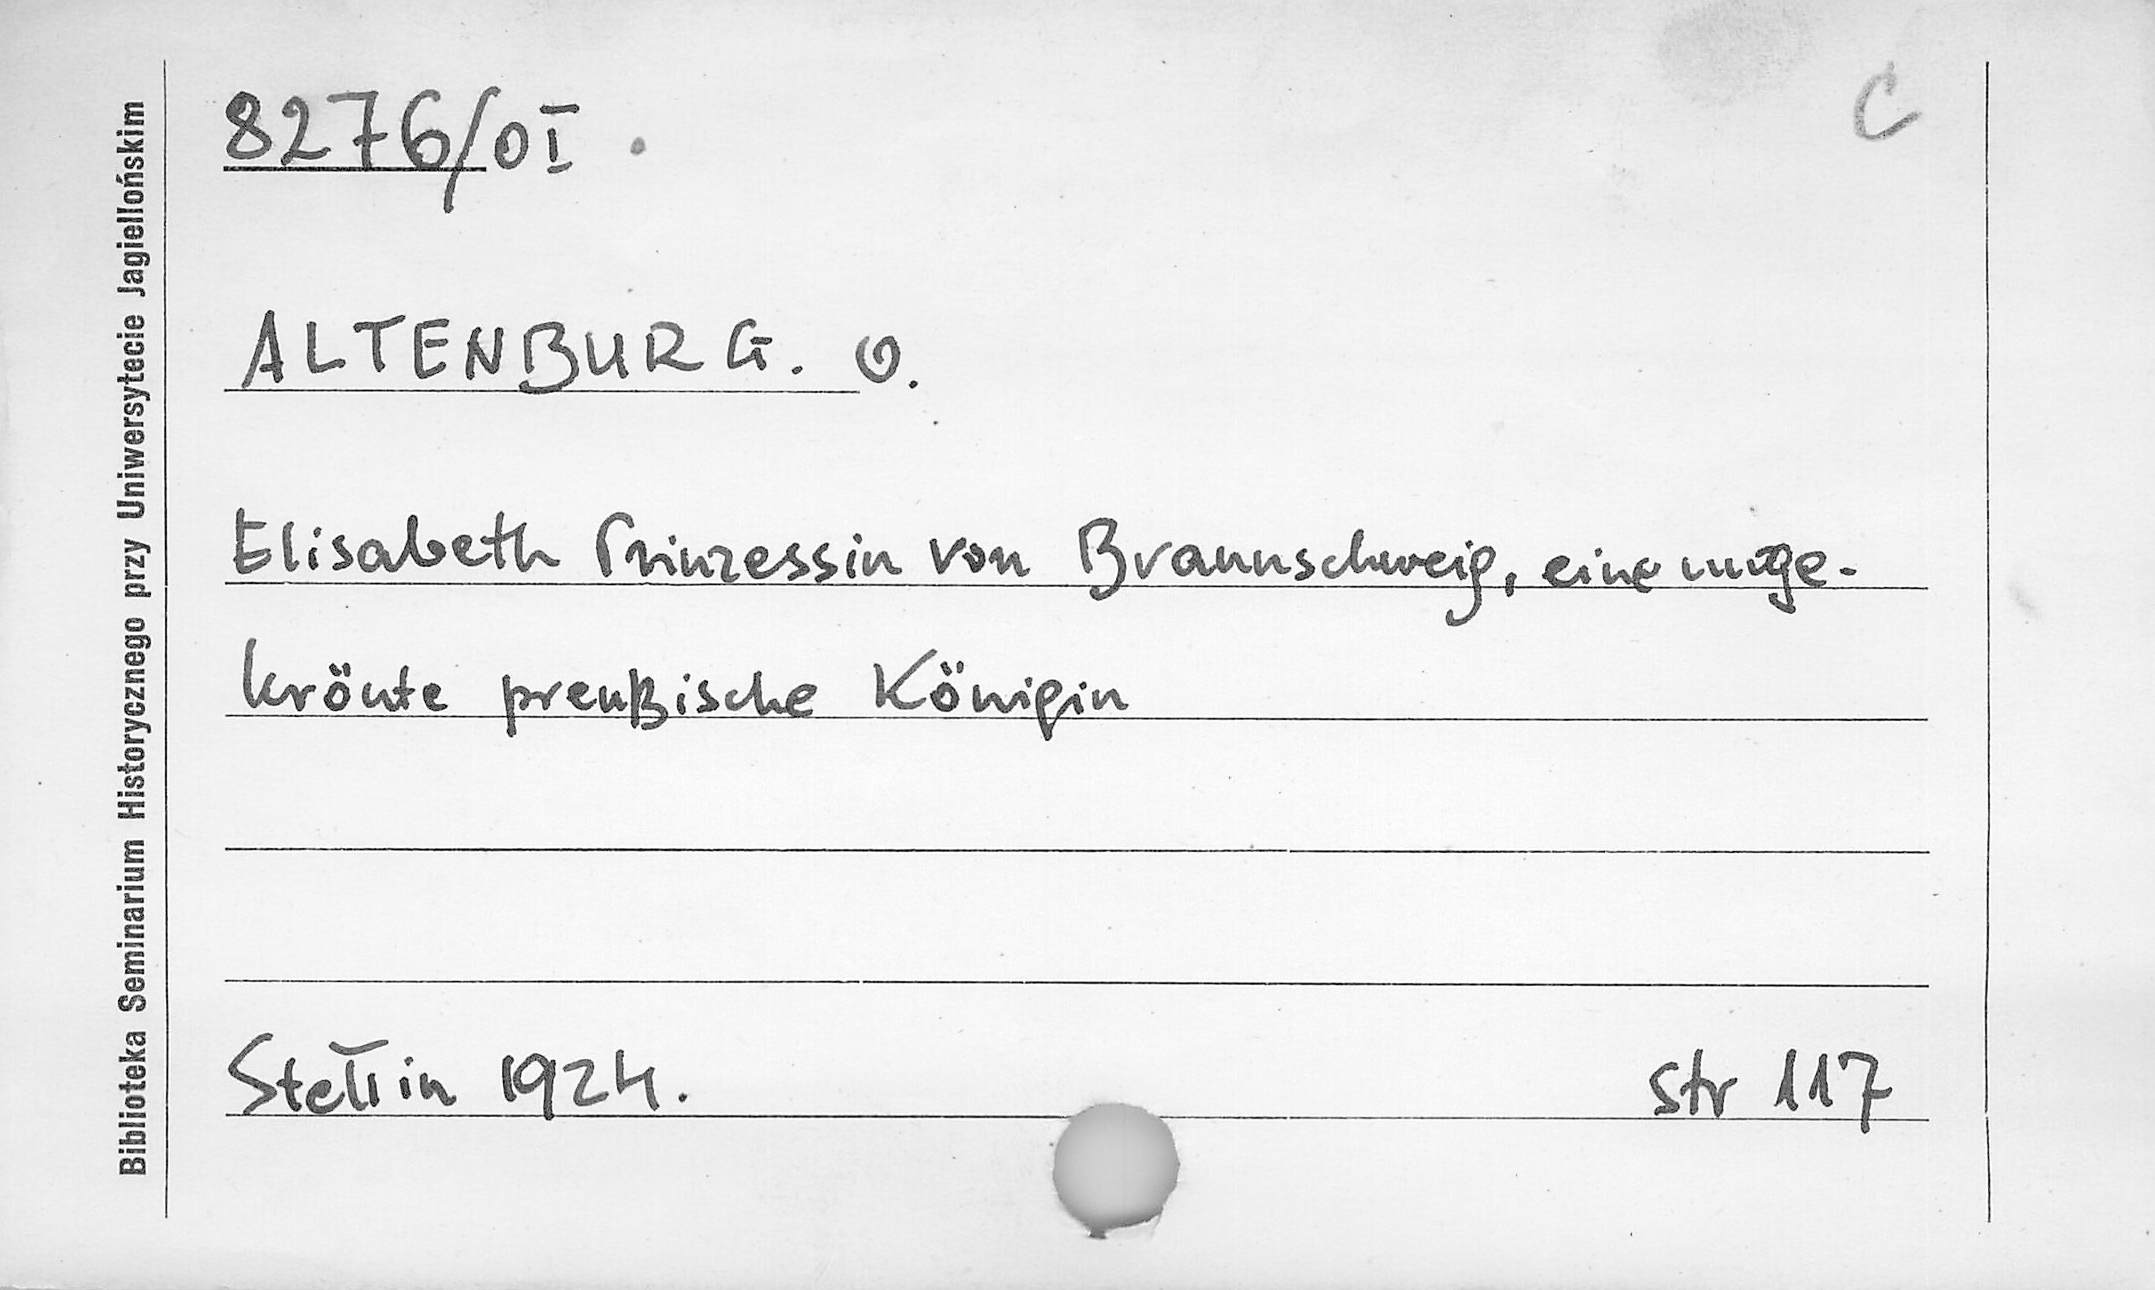 8276/OI
C
ALTENBURG. O.
Elisabeth Prinzessin von Braunschweig, eine unge-
krönte preußische Königin
Stettin 1924.
str 117
Biblioteka Seminarium Historycznego przy Uniwersytecie Jagiellońskim